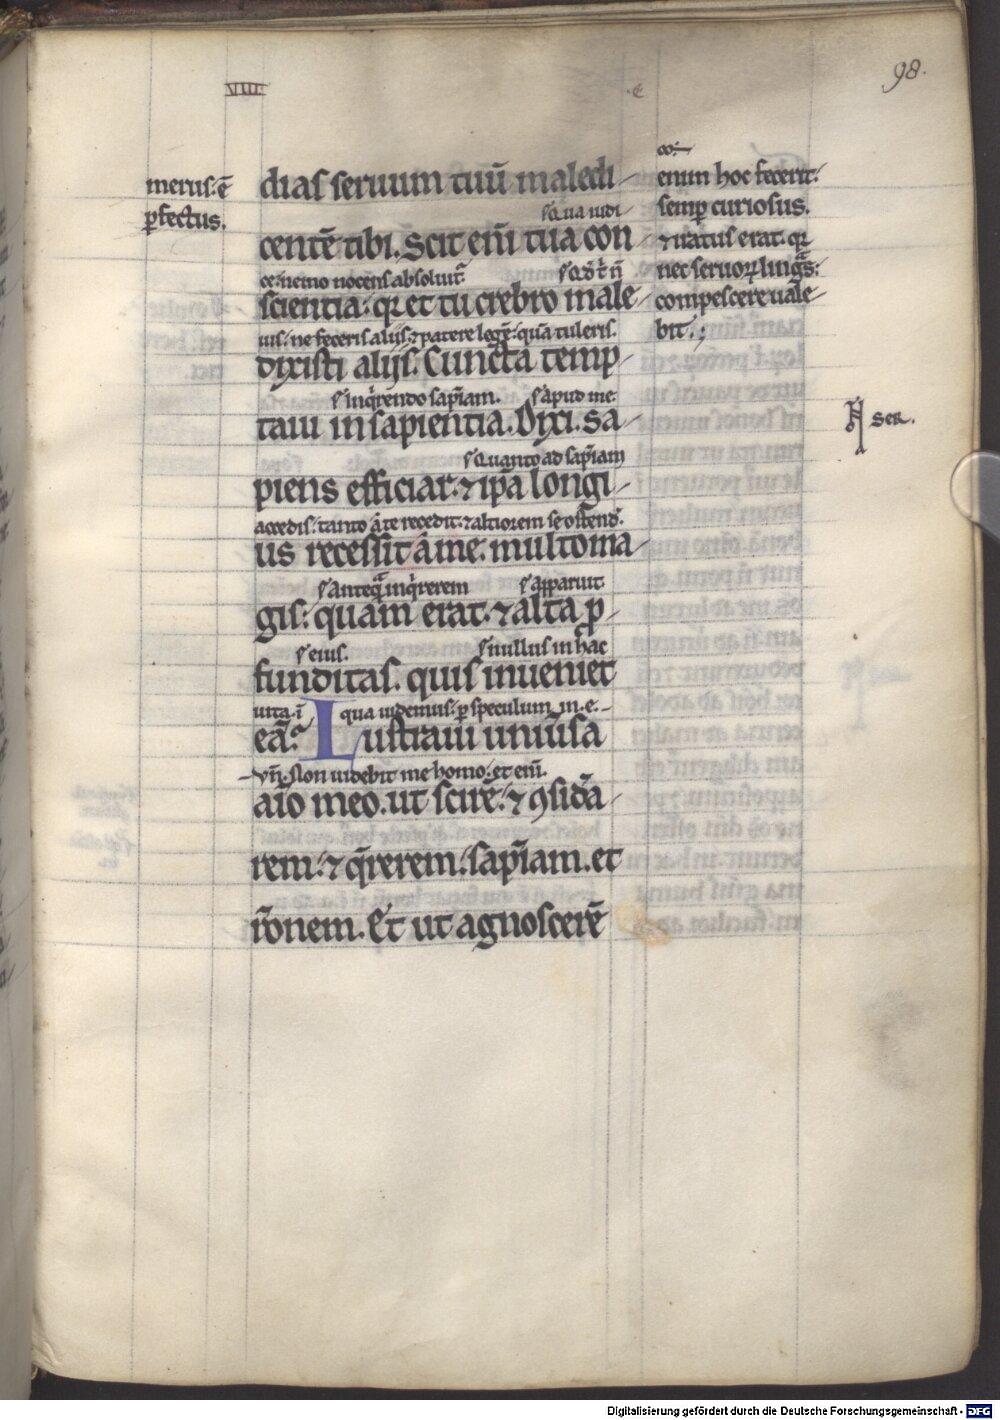 98.
VIIII
.c
merus. ē
ꝑfectus.
dias seruum tuū maledi
s. Qua iudi
centē tibi. Scit eni̅ tua con
ce: nemo nocens absoluit᷑.
scientia: qꝛ et tu crebro male
uis: ne feceris alijs: ⁊ patere legē: quā tuleris.
dixisti alijs. Cuncta temp
s. inq̇rendo sap̅iam. s. apud me.
taui in sapientia. Dixi. Sa
s. Quanto ad sap̅iam
piens efficiar: ⁊ ip̅a longi
accedis: tanto a te recedit: ⁊ altiorem se ostend̅.
us recessit a me: multo ma
s. Anteq̅ inq̇rerem s. apparuit
gis: quam erat: ⁊ alta p̲
s. eius. s. nullus in hac
funditas. quis inueniet
uita. i̅ qua uidemus: ꝑ speculum. in. e.
eā? Lustraui uniu̅sa
Vn̅. Non uidebit me homo: et eni̅.
aīo meo. ut scirē: ⁊ ꝯsid̅a
rem: ⁊ q̅rerem: sap̅iam. et
r̅onem. Et ut agnoscerē
enim hoc fecerit:
semꝑ curiosus.
⁊ uatus erat. qꝛ
nec seruoꝝ lingᷓs:
compescere uale
bit.;
ser.
Digitalisierung gefördert durch die Deutsche Forschungsgemeinschaft - DFG